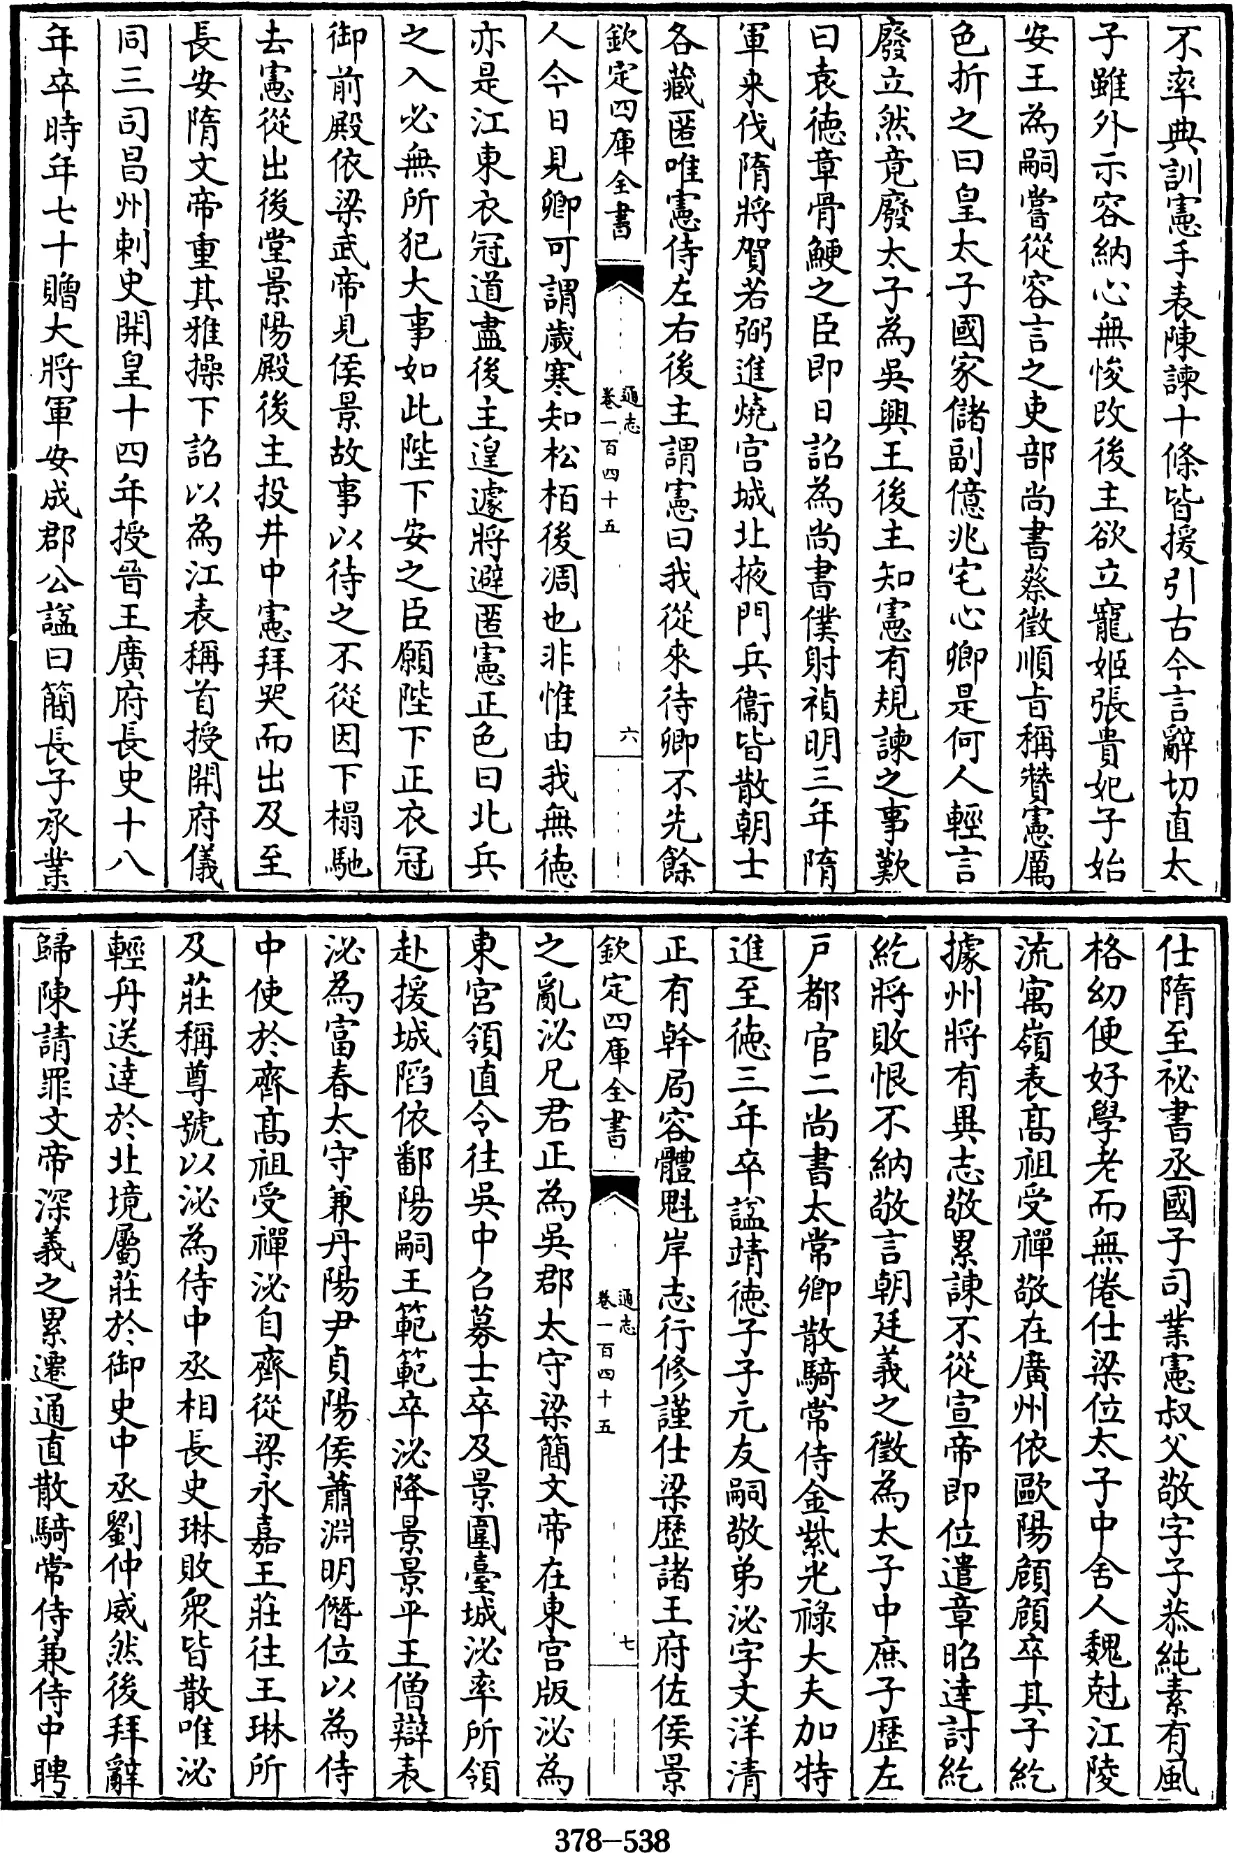 不率典訓憲手表陳諫十條皆援引古今言辭切直太
子雖外示容納心無悛改後主欲立寵姬張貴妃子始
安王為嗣嘗從容言之吏部尚書蔡徵順㫖稱贊憲厲
色折之曰皇太子國家儲副億兆宅心卿是何人輕言
廢立然竟廢太子為吳興王後主知憲有規諫之事歎
曰袁徳章骨鯁之臣即日詔為尚書僕射禎明三年隋
軍来伐隋將賀若弼進燒宫城北掖門兵衞皆散朝士
各藏匿唯憲侍左右後主謂憲曰我從來待卿不先餘
欽定四庫全書
通志
卷一百四十五
六
人今日見卿可謂歲寒知松栢後凋也非惟由我無徳
亦是江東衣冠道盡後主遑遽將避匿憲正色曰北兵
之入必無所犯大事如此陛下安之臣願陛下正衣冠
御前殿依梁武帝見侯景故事以待之不從因下榻馳
去憲從出後堂景陽殿後主投井中憲拜哭而出及至
長安隋文帝重其雅操下詔以為江表稱首授開府儀
同三司昌州刺史開皇十四年授晉王廣府長史十八
年卒時年七十贈大將軍安成郡公諡曰簡長子承業
仕隋至祕書丞國子司業憲叔父敬字子恭純素有風
格幼便好學老而無倦仕梁位太子中舍人魏尅江陵
流寓嶺表髙祖受禪敬在廣州依歐陽頠頠卒其子紇
據州將有異志敬累諫不從宣帝即位遣章昭達討紇
紇將敗恨不納敬言朝廷義之徵為太子中庶子歷左
户都官二尚書太常卿散騎常侍金紫光祿大夫加特
進至徳三年卒諡靖徳子子元友嗣敬弟泌字文洋清
正有幹局容體魁岸志行修謹仕梁歷諸王府佐侯景
欽定四庫全書
通志
卷一百四十五
七
之亂泌兄君正為吳郡太守梁簡文帝在東宫版泌為
東宮領直令往吳中召募士卒及景圍臺城泌率所領
赴援城陷依鄱陽嗣王範範卒泌降景景平王僧辯表
泌為富春太守兼丹陽尹貞陽侯蕭淵明僭位以為侍
中使於齊髙祖受禪泌自齊從梁永嘉王莊往王琳所
及莊稱尊號以泌為侍中丞相長史琳敗衆皆散唯泌
輕舟送達於北境屬莊於御史中丞劉仲威然後拜辭
歸陳請罪文帝深義之累遷通直散騎常侍兼侍中聘
378-538